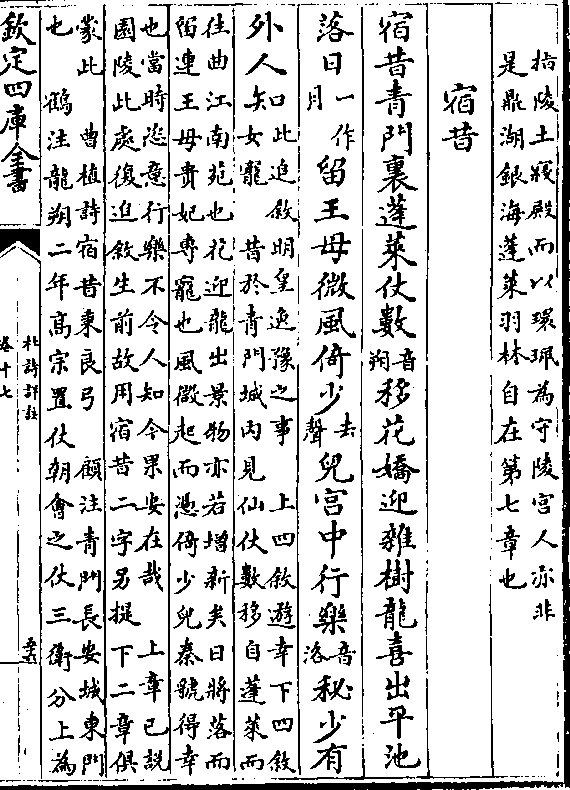 指陵土寢殿而以環珮為守陵宮人亦非
是鼎湖銀海蓬萊羽林自在第七章也
宿昔
宿昔青門裏蓬萊仗數音朔移花嬌迎雜樹龍喜出平池
落日一作月留王母微風倚少去聲兒宮中行樂音洛秘少有
外人知此追敘明皇逸豫之事 上四敘遊幸下四敘
女寵 昔於青門城内見仙仗數移自蓬萊而
往曲江南苑也花迎龍出景物亦若增新矣日將落而
留連王母貴妃專寵也風微起而憑倚少兒秦虢得幸
也當時恣意行樂不令人知今果安在哉 上章已說
園陵此處復追敘生前故用宿昔二字另提 下二章俱
蒙此 曹植詩宿昔秉良弓 顧注青門長安城東門
也 鶴注龍朔二年高宗置仗朝會之仗三衛分上為
欽定四庫全書
杜詩詳註
卷十七